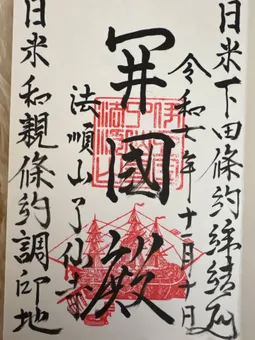 日米下田條約締結処
令和年十一月十日
開國殿
法順山了仙寺
日米和親條約調印地